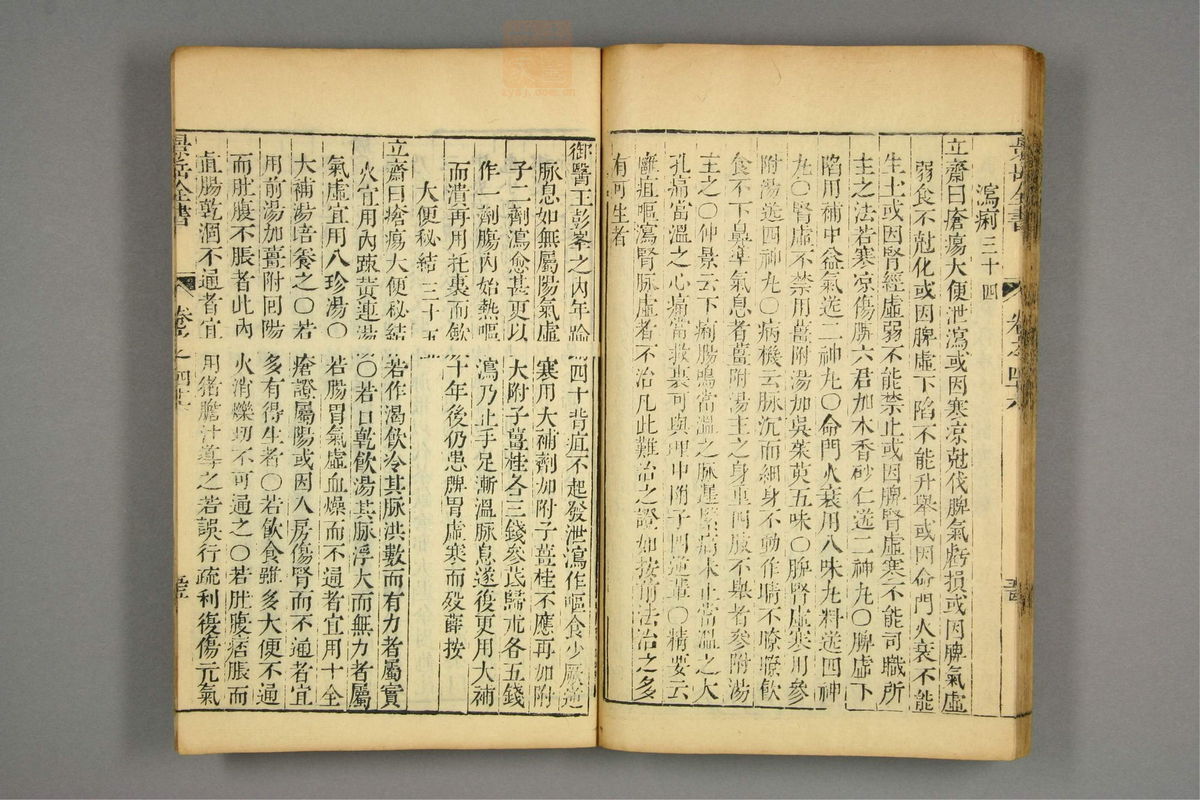 景岳全書
卷之四十六
瀉痢三十四
立齋曰瘡瘍大便泄瀉或因寒凉尅伐脾氣虧損或因脾氣虛
弱食不尅化或因脾虛下陷不能升舉或因命門火衰不能
生土或因腎經虛弱不能禁止或因脾腎虛寒不能司職所
主之法若寒凉傷脾六君加木香砂仁送二神丸〇脾虛下
陷用補中益氣送二神丸〇命門火衰用八味丸料送四神
丸〇腎虛不禁用薑附湯加吳茱萸五味〇脾腎虛寒用參
附湯送四神丸〇病機云脉沉而細身不動作睛不暸飲
食不下鼻準氣息者薑附湯主之身重四肢不舉者參附湯
主之〇仲景云下痢腸鳴當溫之脉遲緊痛未止當溫之大
孔痛當溫之心痛當救裏可與理中附子四逆輩〇精要云
癰疽嘔瀉腎脉虛者不治凡此難治之證如按前法治之多
有可生者
御醫王彭峯之內年踰四十背疽不起發泄瀉作嘔食少厥逆
脉息如無屬陽氣虛寒用大補劑加附子薑桂不應再加附
子二劑瀉愈甚更以大附子薑桂各三錢參芪歸朮各五錢
作一劑腸內始熱嘔瀉乃止手足漸溫脉息遂復更用大補
而潰再用托裏而歛十年後仍患脾胃虛寒而歿薛按
大便秘結三十五
立齋曰瘡瘍大便秘結若作渴飲冷其脉洪數而有力者屬實
火宜用內疎黃連湯〇若口乾飲湯其脉浮大而無力者屬
氣虛宜用八珍湯〇若腸胃氣虛血燥而不通者宜用十全
大補湯培養之〇若瘡證屬陽或因入房傷腎而不通者宜
用前湯加薑附回陽多有得生者〇若飲食雖多大便不通
而肚腹不脹者此內火消爍切不可通之〇若肚腹痞脹而
直腸乾涸不通者宜用猪膽汁導之若誤行疏利復傷元氣
景岳全書
卷之四十六